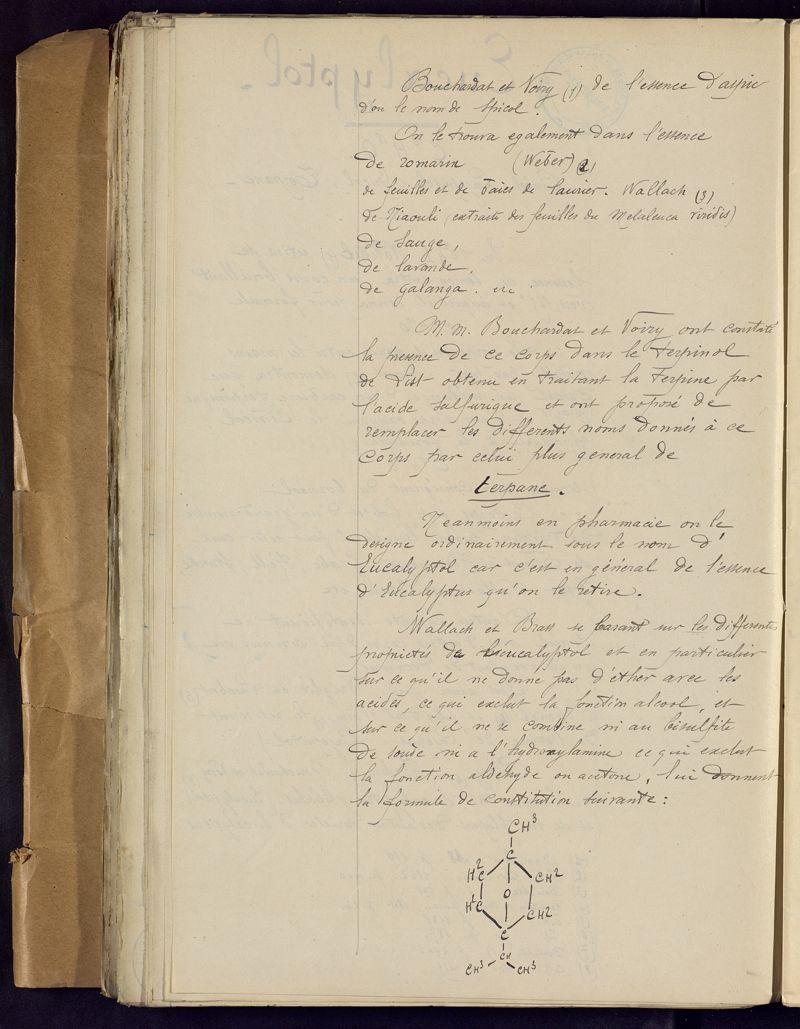 Bouchardat et Voiry (1) de l'essence d'aspic
d'ou le nom de Spicol.
On le trouva egalement dans l'essence
de romarin (Weber) (2)
de feuilles et de baies de laurier. Wallach (3)
de Niaouli (extraite des feuilles du Melaleuca viridis)
de Sauge,
de lavande.
de galanga. etc
M. M. Bouchardat et Voiry ont constaté
la presence de ce corps dans le terpinol
de List obtenu en traitant la Terpine par
l'acide Sulfurique et ont proposé de
remplacer les differents noms donnés à ce
corps par celui plus general de
terpane.
Neanmoins en pharmacie on le
designe ordinairement sous le nom d'
Eucalyptol car c'est en général de l'essence
d'Eucalyptus qu'on le retire.
Wallach et Brass se basant sur les differentes
propriétés de l'eucalyptol et en particulier
sur ce qu'il ne donne pas d'éther avec les
acides, ce qui exclut la fonction alcool, et
sur ce qu'il ne se combine ni au bisulfite
de soude ni a l'hydroxylamine ce qui exclut
la fonction aldehyde ou acetone, lui donnent
la formule de constitution suivante:
CH3
C
H2C CH2
O
H2C CH2
C
CH
CH3 CH3
Eucalyptol